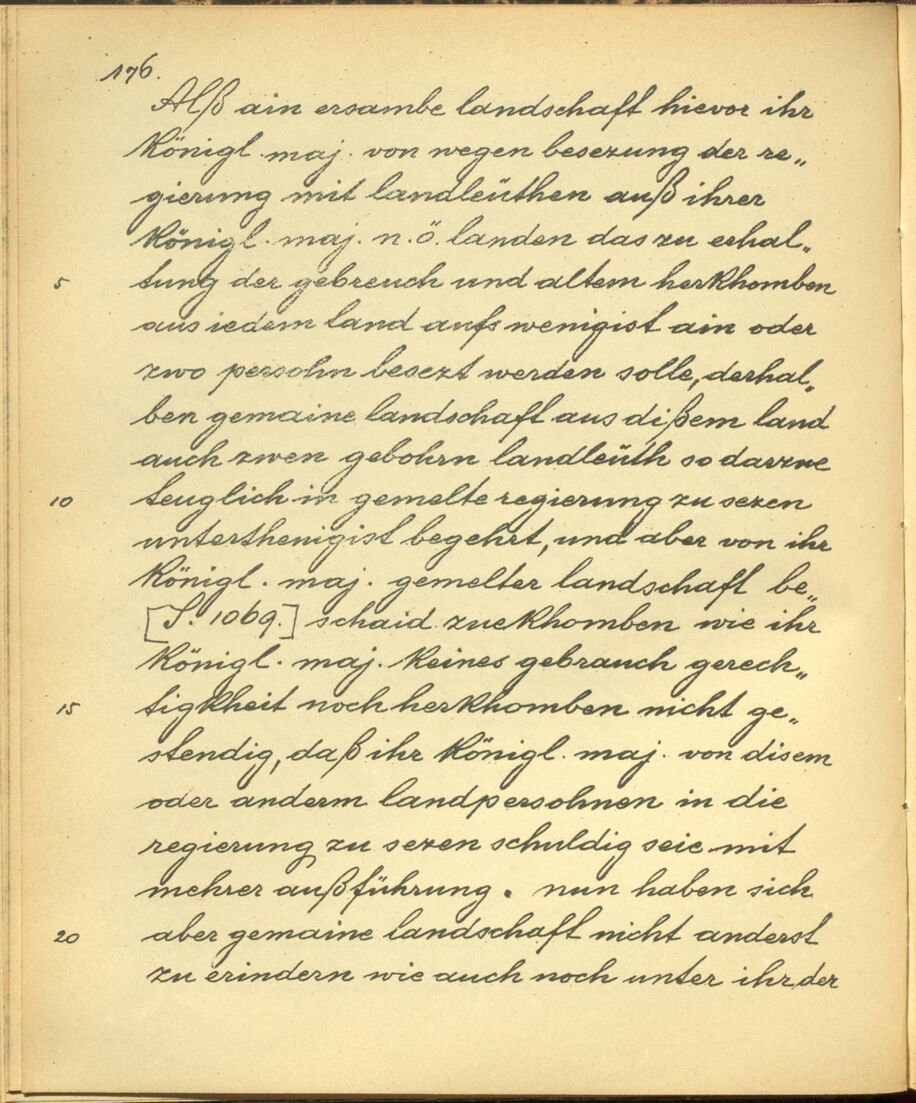 176.
Alß ain ersambe landschaft hievor ihr
Königl. maj. von wegen besezung der re„
gierung mit landleüthen auß ihrer
Königl. maj. n. ö. landen das zu erhal„
5 tung der gebreuch und altem herkhomben
aus iedem land aufs wenigist ain oder
zwo persohn besezt werden solle, derhal„
ben gemaine landschaft aus dißem land
auch zwen gebohrn landleüth so darzue
10 teuglich in gemelte regierung zu sezen
unterthenigist begehrt, und aber von ihr
Königl. maj. gemelter landschaft be„
[S. 1069.] schaid zuekhomben wie ihr
Königl. maj. keines gebrauch gerech„
15 tigkheit noch herkhomben nicht ge„
stendig, daß ihr Königl. maj. von disem
oder anderm landpersohnen in die
regierung zu sezen schuldig seie mit
mehrer außführung. nun haben sich
20 aber gemaine landschaft nicht anderst
zu erindern wie auch noch unter ihr der